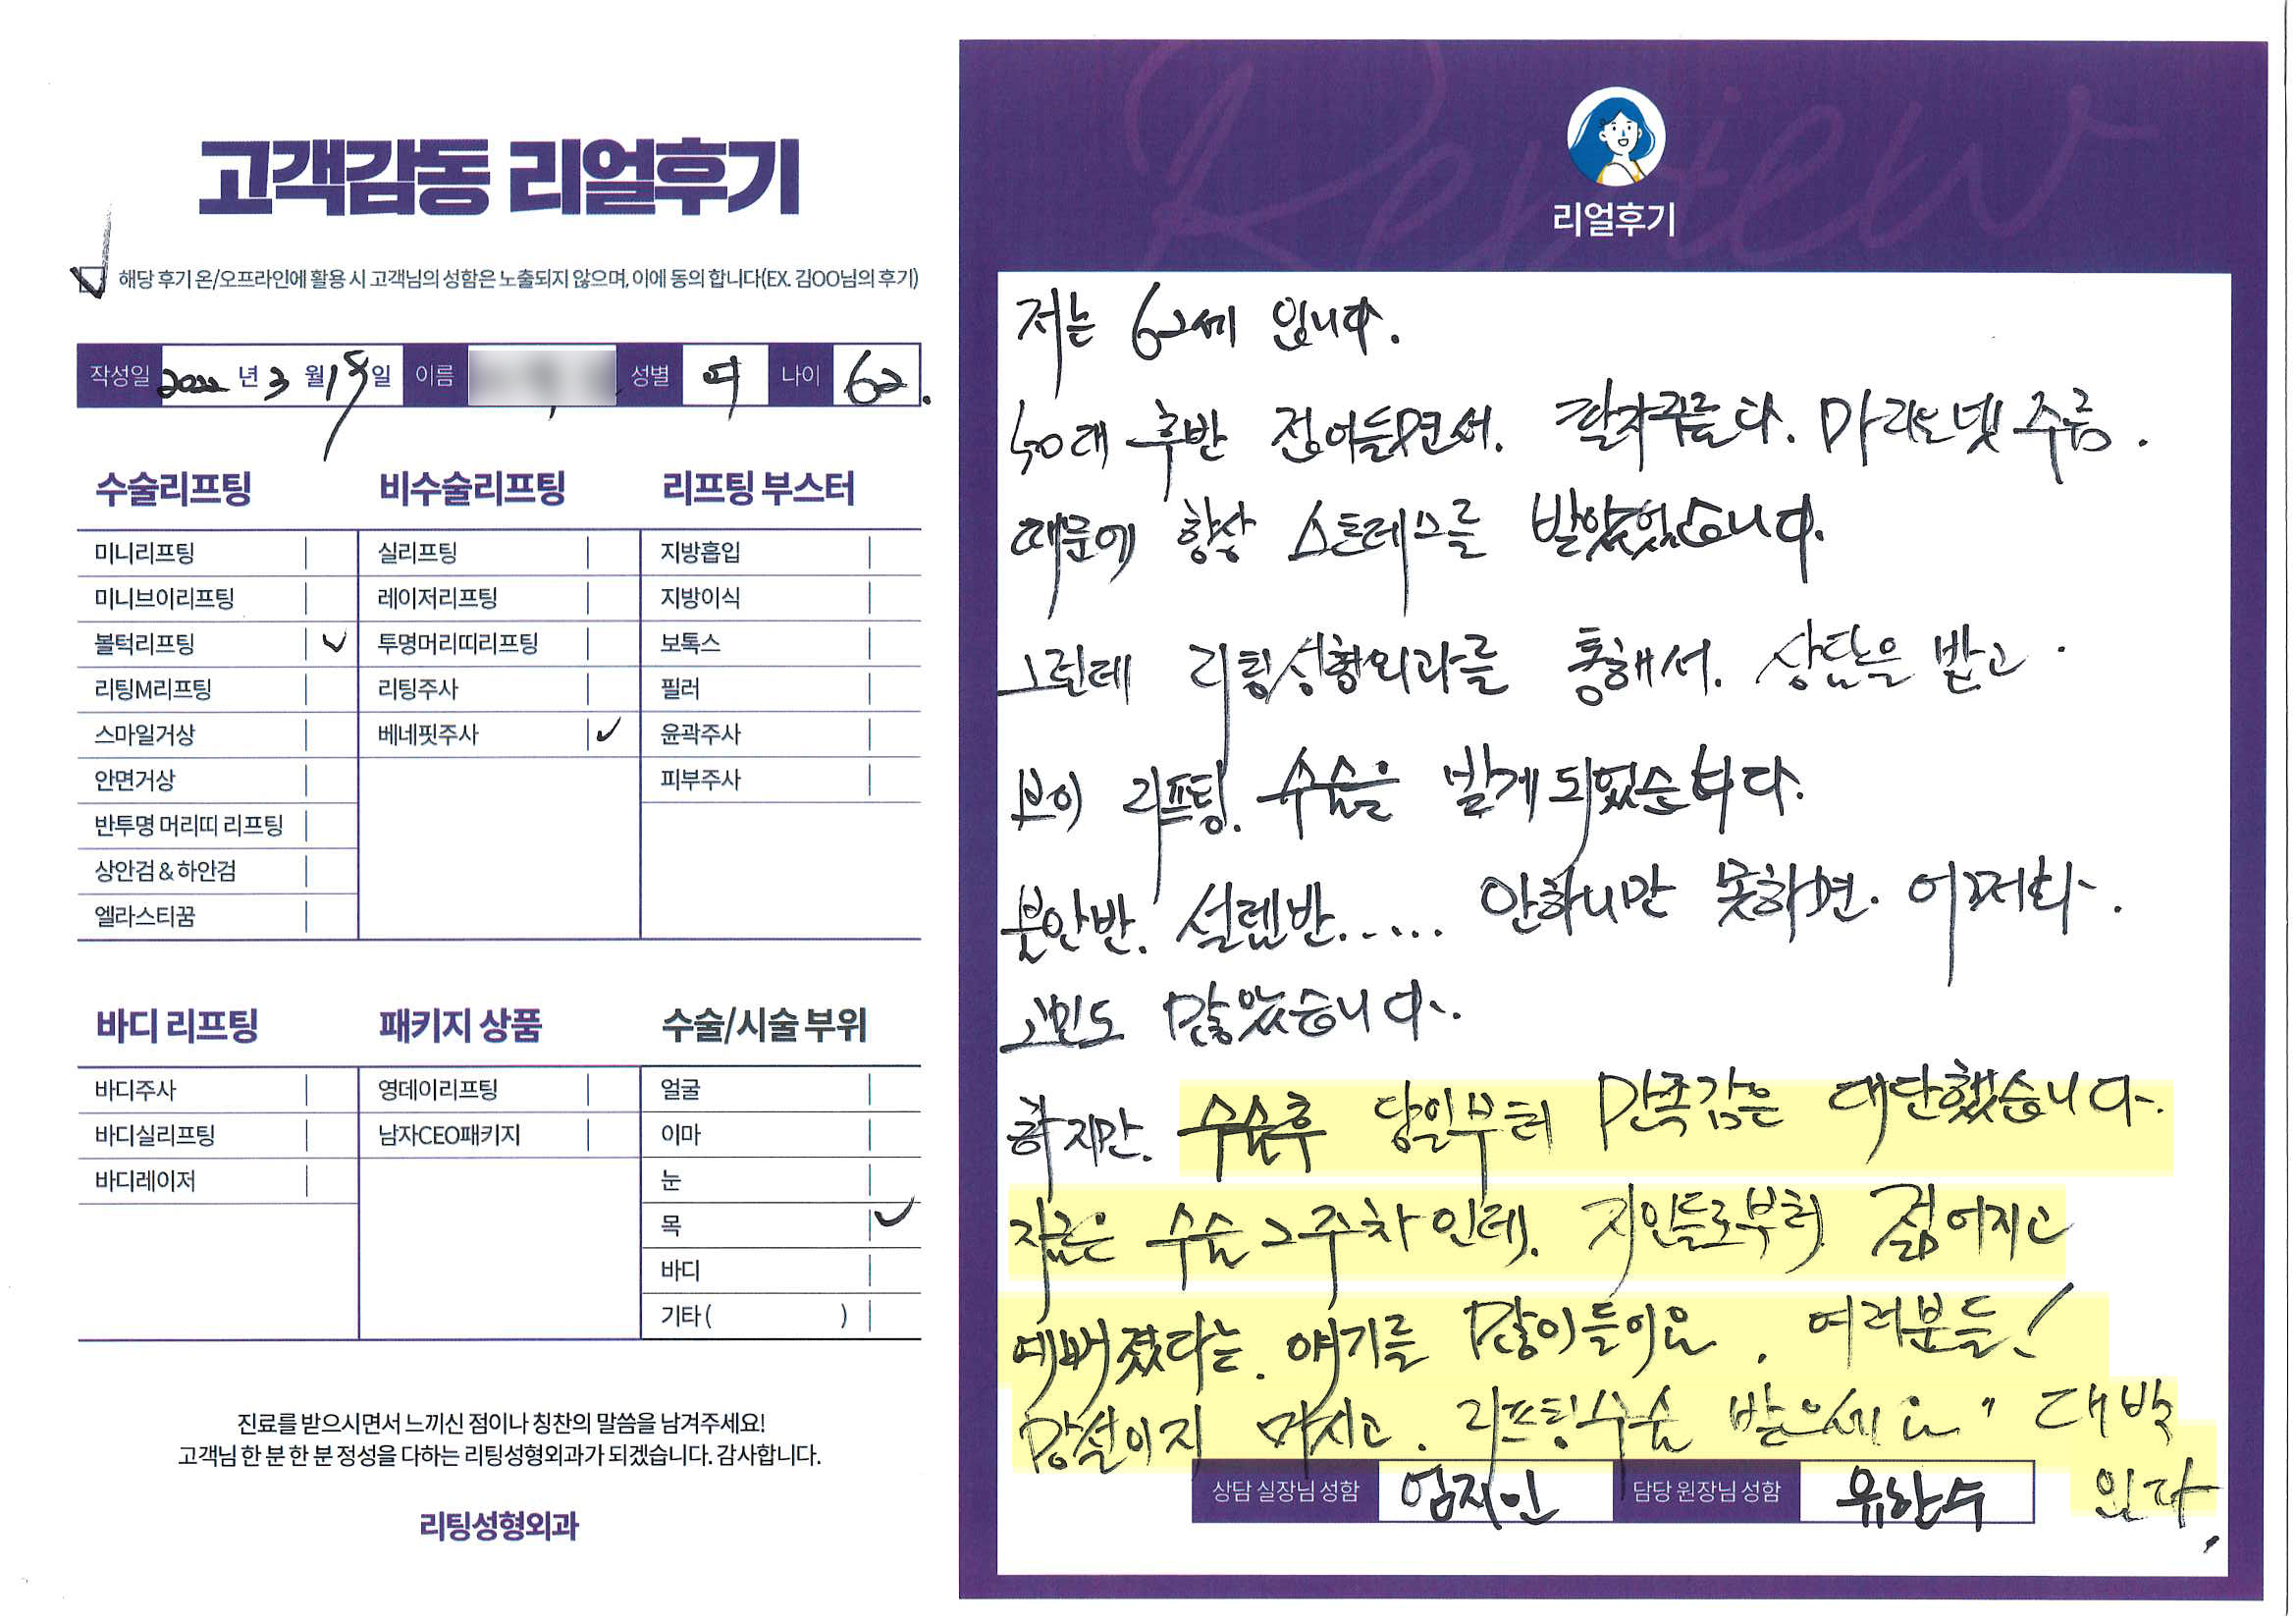 고객감동 리얼후기
해당 후기 온/오프라인에 활용 시 고객님의 성함은 노출되지 않으며, 이에 동의 합니다(EX. 김OO님의 후기)
작성일 2022 년 3 월 일 이름 성별 여 나이 62.
수술리프팅
미니리프팅
미니브이리프팅
볼턱리프팅
리팅M리프팅
스마일거상
안면거상
반투명 머리띠 리프팅
상안검 & 하안검
엘라스티꿈
비수술리프팅
실리프팅
레이저리프팅
투명머리띠리프팅
리팅주사
베네핏주사
리프팅 부스터
지방흡입
지방이식
보톡스
필러
윤곽주사
피부주사
바디 리프팅
바디주사
바디실리프팅
바디레이저
패키지 상품
영데이리프팅
남자CEO패키지
수술/시술 부위
얼굴
이마
눈
목
바디
기타 ( )
진료를 받으시면서 느끼신 점이나 칭찬의 말씀을 남겨주세요!
고객님 한 분 한 분 정성을 다하는 리팅성형외과가 되겠습니다. 감사합니다.
리팅성형외과
Review
리얼후기
저는 62세 입니다.
50대 후반 접어들면서. 팔자주름과. 마리오넷 주름.
때문에 항상 스트레스를 받았었습니다.
그런데 리팅성형외과를 통해서. 상담을 받고.
브이 리프팅. 수술을 받게 되었습니다.
불안반. 설렘반..... 안하니만 못하면. 어쩌나.
고민도 많았습니다.
하지만. 수술후 당일부터 만족감은 대단했습니다.
지금은 수술 2주차인데. 지인들로부터 젊어지고
예뻐졌다는. 얘기를 많이들어요. 여러분들!
망설이지 마시고. 리프팅수술 받으세요" 대박
입니다.
상담 실장님 성함 엄지인 담당 원장님 성함 유한수